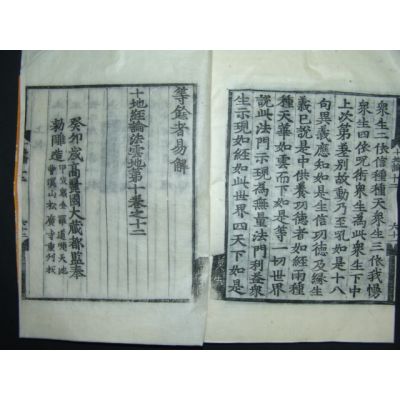 衆生二依信種種天衆生三依我慢
衆生四依呪術衆生是衆生下中
上次第差別故動乃至吼如是十八
句異義應知如是生信功德及緣生
義已說是中供養功德者如經雨種
種天華如雲而下如是等一切世界
說此法門示現爲無量法門利益衆
生示現如經如此世界四天下如是
等餘者易解
十地經論法雲地第十卷之十二
癸卯歲高麗國大藏都監奉
勅雕造
全羅道順天地
曹溪山松廣寺重刊